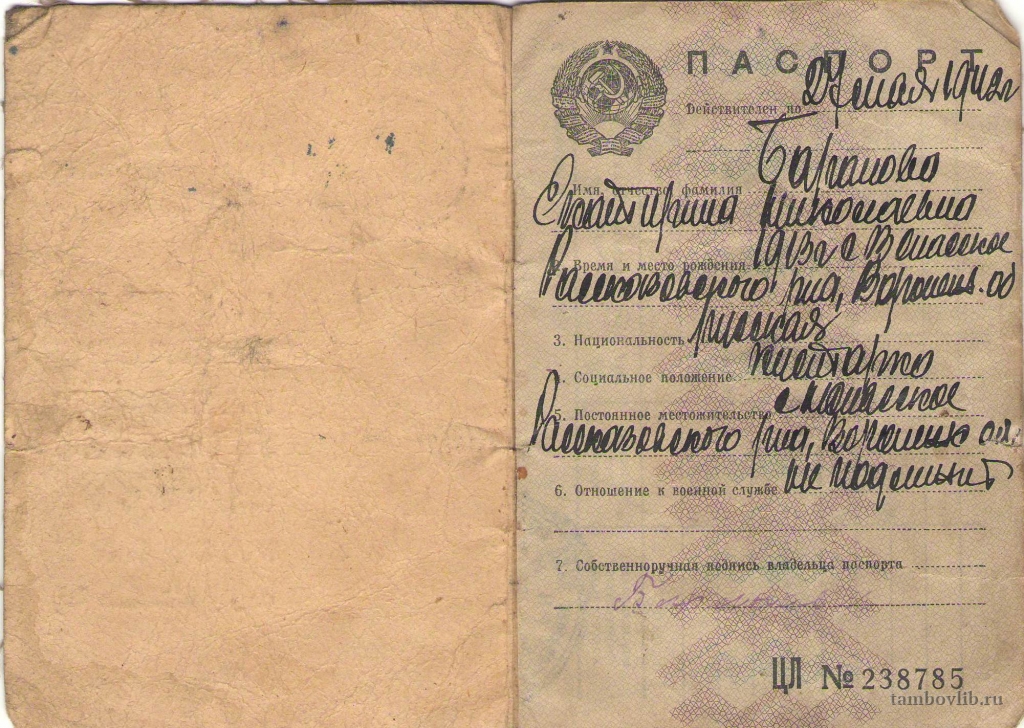 ПАСПОРТ
Действителен по 27 мая 1942г
Баранова
1. Имя, отчество, фамилия
Екатерина Николаевна
2. Время и место рождения 1913г с
Рассказовского р-на, Воронеж. об
3. Национальность русская
4. Социальное положение
5. Постоянное местожительство с
Рассказовского р-на, Воронеж об.
6. Отношение к военной службе не подлежит
7. Собственноручная подпись владельца паспорта
ЦЛ № 238785
tambovlib.ru